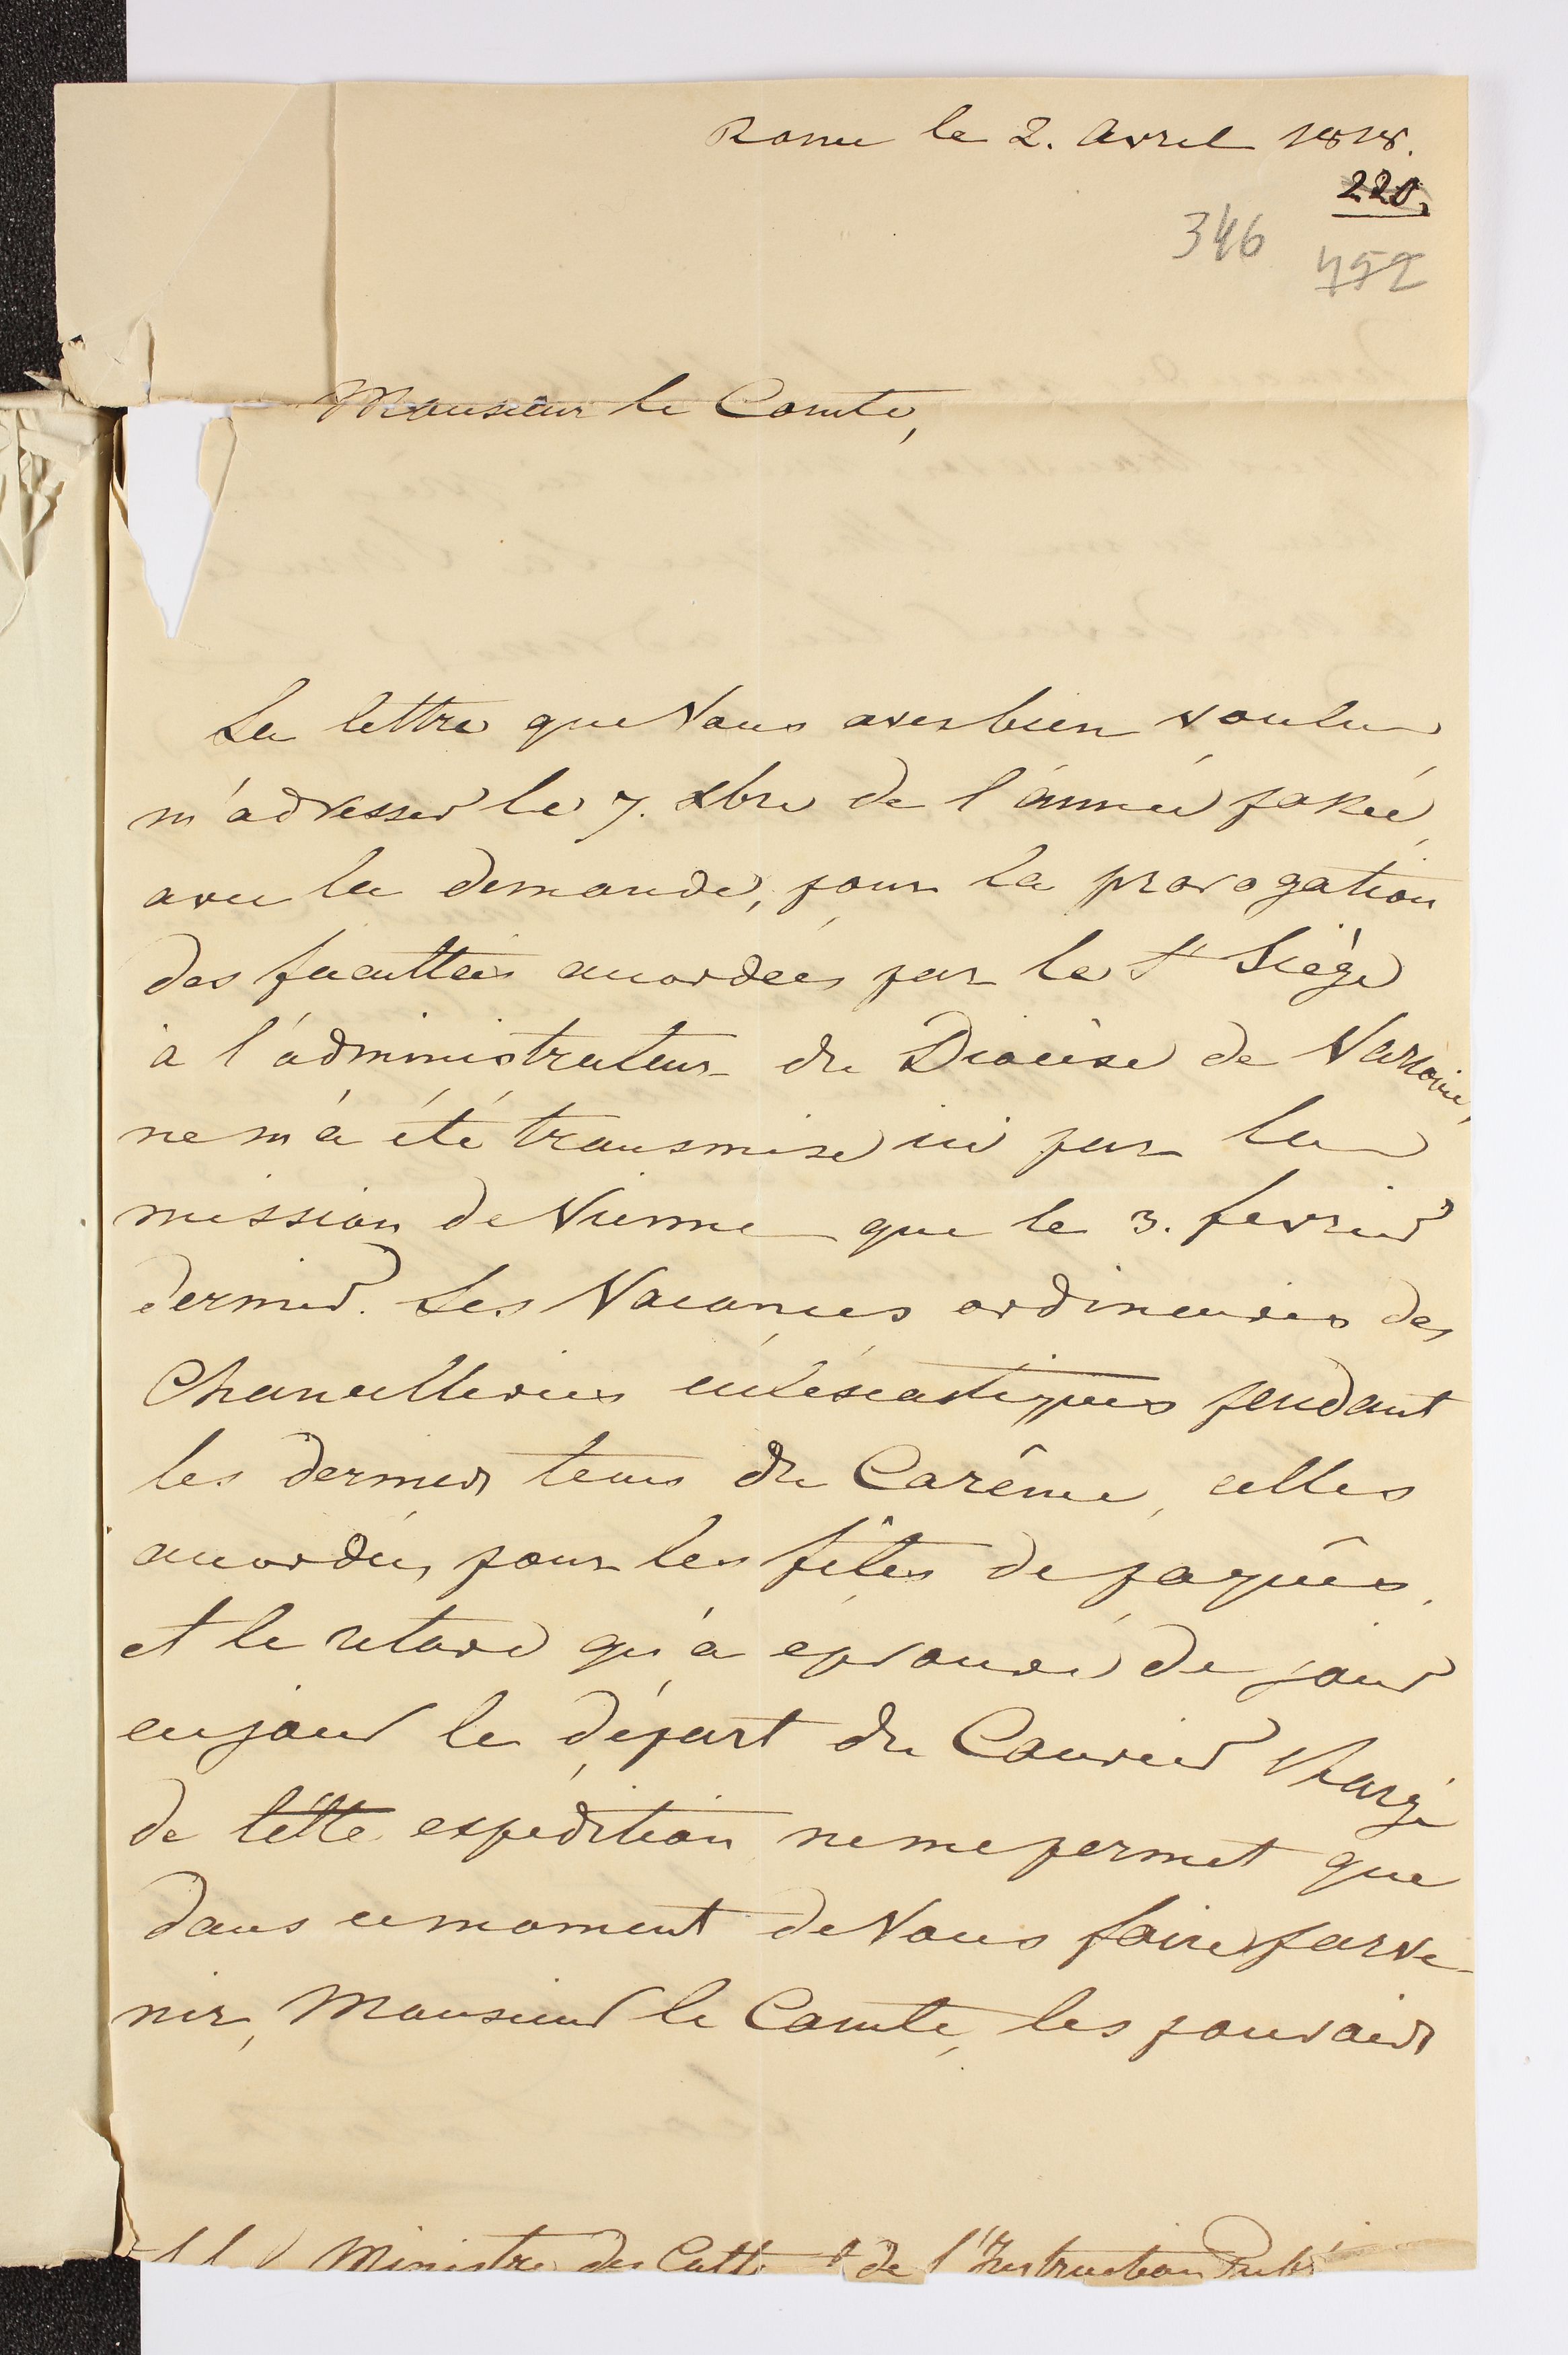 Rome le 2. Avril 1818.
220.
346 452
Monsieur le Comte,
La lettre que Vous avez bien voulu
m'adresser le 7. Xbre de l'année passée,
avec la demande, pour la prorogation
des facultées accordées par le St Siège
à l'administrateur du Diocèse de Varsovie,
ne m'a été transmise ici par la
mission de Vienne que le 3. fevrier
dernier. Les Vacances ordinaires des
Chancelleries eclésiastiques pendant
les derniers tems du Carême, celles
accordées pour les fêtes de paques,
et le retard qu'a eprouvé de jour
en jour le départ du Courier chargé
de cette expedition ne me permet que
dans ce moment de Vous faire parve-
nir, Monsieur le Comte, les pouvoirs
Ministre des Cultes et de l'Instruction Publ